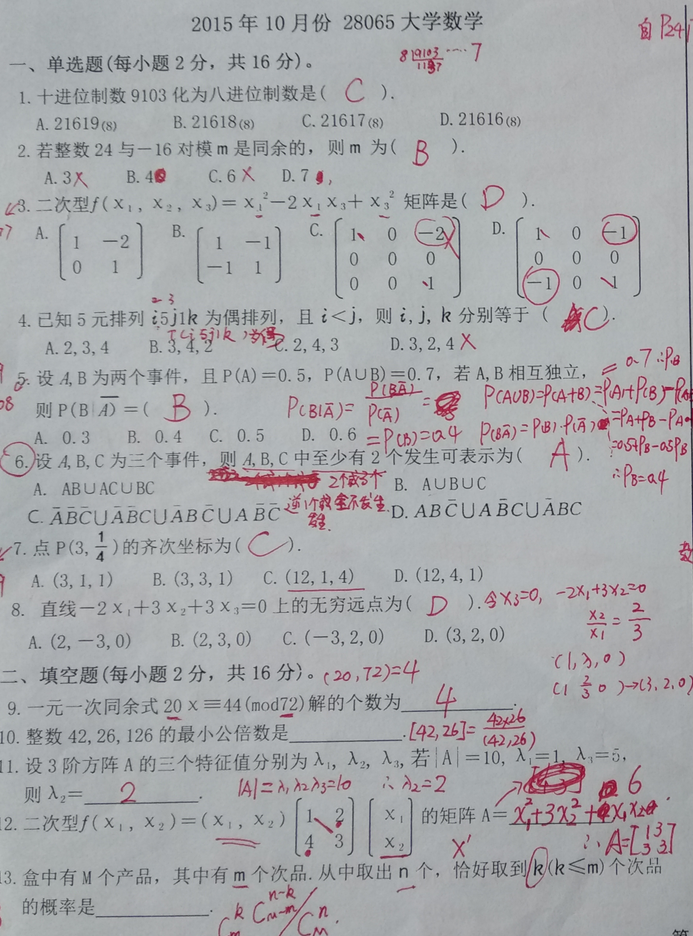 2015年10月份 28065大学数学
自P241
一、单选题(每小题2分，共16分)。
1.十进位制数9103化为八进位制数是( C ).
A.21619(8) B.21618(8) C.21617(8) D.21616(8)
2.若整数24与-16对模m是同余的，则m为( B ).
A.3× B.4 C.6× D.7
3.二次型f(x₁, x₂, x₃)=x₁²-2x₁x₃+x₃² 矩阵是( D ).
A. B. C. D.
1 -2 1 -1 1 0 -2 1 0 -1
0 1 -1 1 0 0 0 0 0 0
0 0 1 -1 0 1
4.已知5元排列 i5j1k 为偶排列，且 i<j，则 i, j, k 分别等于( C ).
A.2,3,4 B.3,4,2 C.2,4,3 D.3,2,4 ×
5.设A,B为两个事件，且P(A)=0.5，P(A∪B)=0.7，若A,B相互独立，
则P(B|A̅)=( B ).
P(B|A̅)=P(BA̅)/P(A̅)=
P(A∪B)=P(A+B)=P(A)+P(B)-
A. 0.3 B. 0.4 C. 0.5 D. 0.6
=P(B)=0.4 P(BA̅)=P(B)·P(A̅)
=0.5+PB-0.5PB
∴PB=0.4
6.设A,B,C为三个事件，则A,B,C中至少有2个发生可表示为( A ).
2个或3个
A. AB∪AC∪BC B. A∪B∪C
C. A̅B̅C̅∪A̅B̅C∪A̅BC̅∪AB̅C̅ D. ABC̅∪AB̅C∪A̅BC
7.点P(3, 1/4)的齐次坐标为( C ).
A.(3,1,1) B.(3,3,1) C.(12,1,4) D.(12,4,1)
8. 直线-2x₁+3x₂+3x₃=0上的无穷远点为( D ).
令x₃=0, -2x₁+3x₂=0
x₂/x₁=2/3
A.(2,-3,0) B.(2,3,0) C.(-3,2,0) D.(3,2,0)
(1,λ,0)
(1 2/3 0)→(3,2,0)
二、填空题(每小题2分，共16分)。
(20,72)=4
9.一元一次同余式20x≡44(mod72)解的个数为 4 .
10.整数42,26,126的最小公倍数是 .
[42,26]=42×26/(42,26)
11.设3阶方阵A的三个特征值分别为λ₁, λ₂, λ₃, 若|A|=10, λ₁=1, λ₃=5,
则λ₂= 2 .
|A|=λ₁λ₂λ₃=10 ∴λ₂=2
6
12.二次型f(x₁, x₂)=(x₁, x₂) [1 2; 4 3] [x₁; x₂] 的矩阵A=
x₁²+3x₂²+
∴A=[1 3; 3 3]
13.盒中有M个产品，其中有m个次品.从中取出n个，恰好取到k(k≤m)个次品
的概率是 .